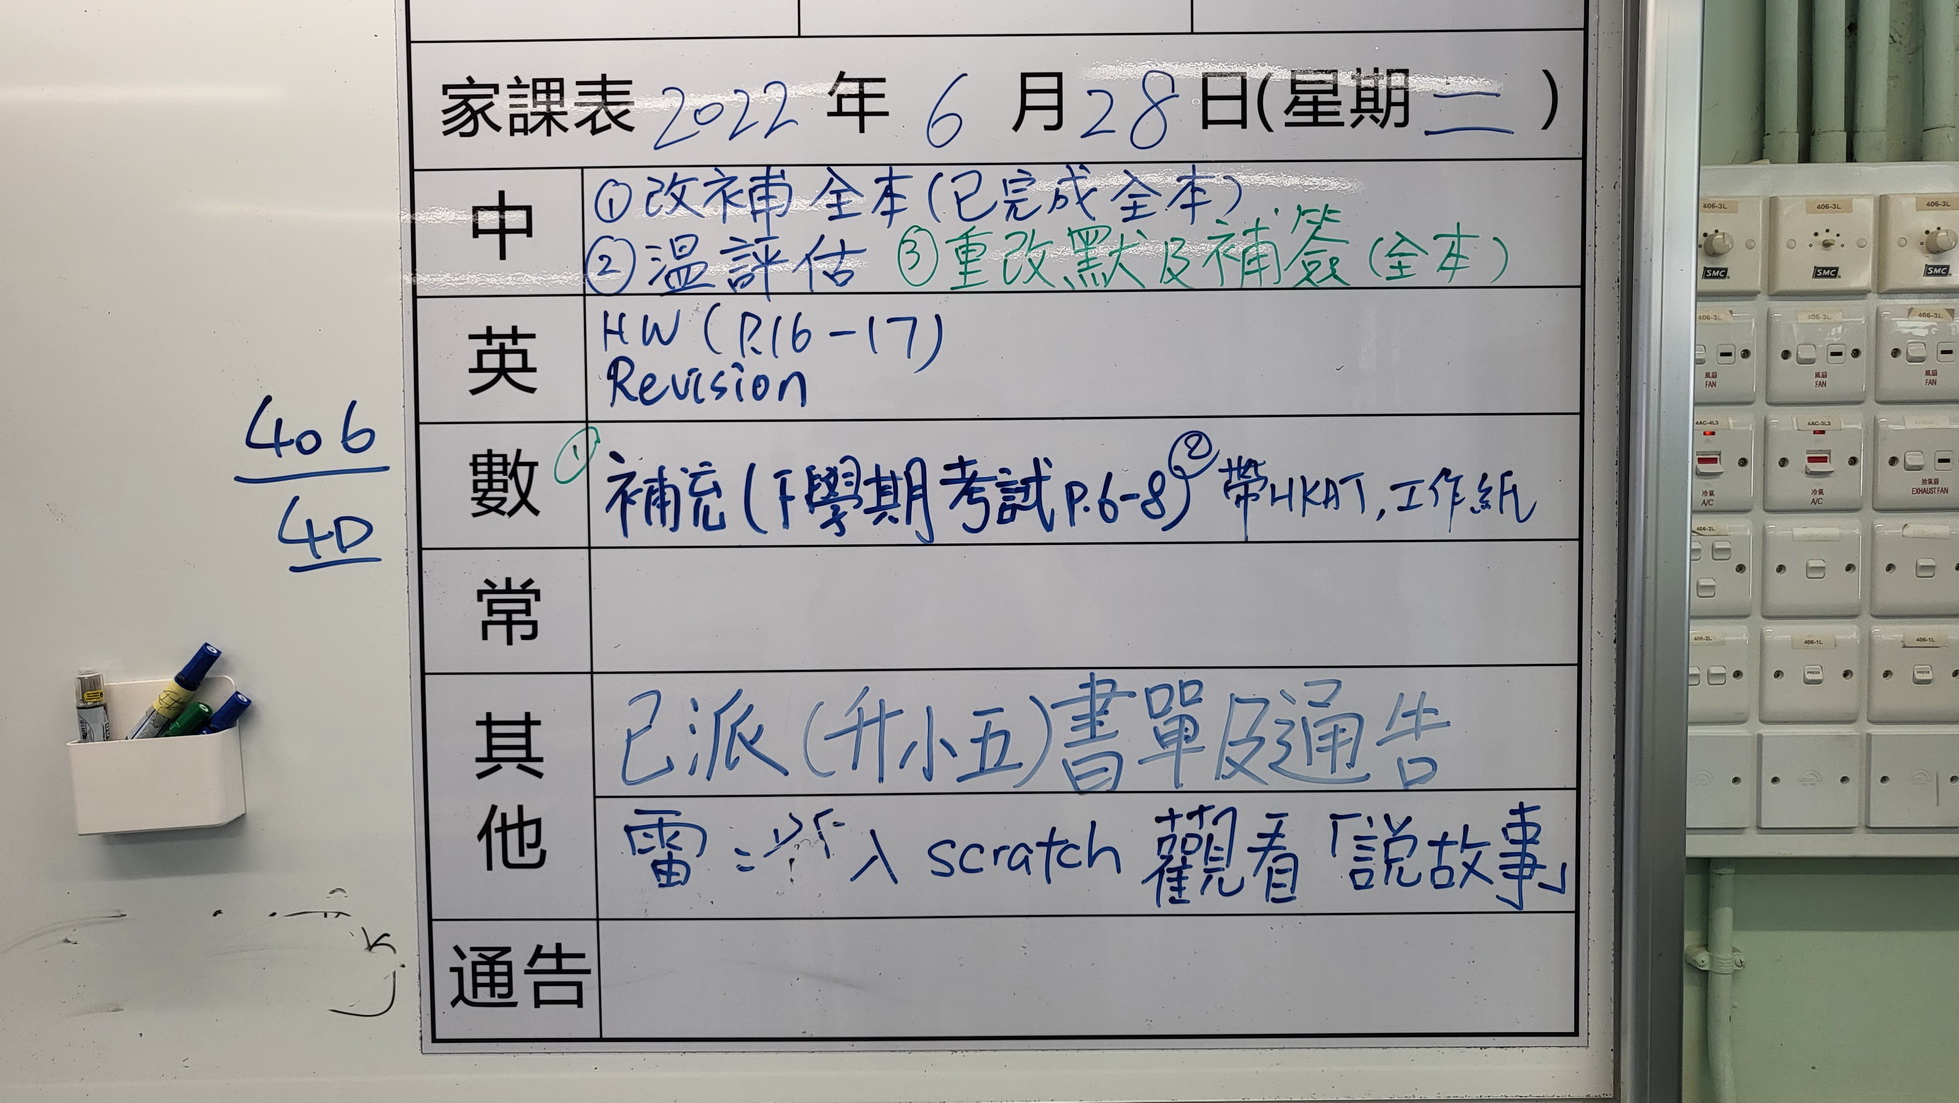 家課表 2022 年 6 月 28 日(星期二)
中
①改補全本(已完成全本)
②溫評估 ③重改默及補簽(全本)
英
HW (P.16-17)
Revision
數
①補充(下學期考試P.6-8) ②帶HKAT,工作紙
常
其他
己派(升小五)書單及通告
雷: 入 scratch 觀看「說故事」
通告
406
4D
406-3L 406-3L 406-3L
SMC SMC SMC
406-3L 406-3L 406-3L
風扇 風扇 風扇
FAN FAN FAN
4AC-4L3 4AC-3L3
冷氣 冷氣 抽氣扇
A/C A/C EXHAUST FAN
406-2L
406-2L 406-1L 406-1L
PRESS PRESS